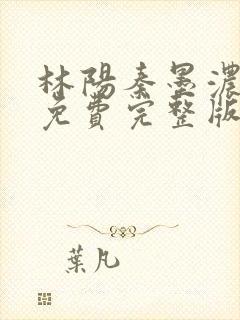 林陽秦墨濃
免費完整版
葉凡